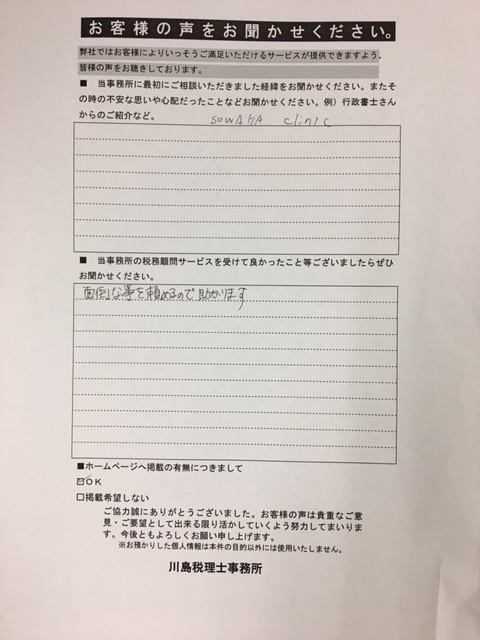 お客様の声をお聞かせください。
弊社ではお客様によりいっそうご満足いただけるサービスが提供できますよう、
皆様の声をお聴きしております。
■ 当事務所に最初にご相談いただきました経緯をお聞かせください。またそ
の時の不安な思いや心配だったことなどお聞かせください。例）行政書士さん
からのご紹介など。
SOWAKA clinic
■ 当事務所の税務顧問サービスを受けて良かったこと等ございましたらぜひ
お聞かせください。
面倒な事を頼めるので助かります
■ホームページへ掲載の有無につきまして
☑OK
□掲載希望しない
ご協力誠にありがとうございました。お客様の声は貴重なご意
見・ご要望として出来る限り活かしていくよう努力してまいりま
す。今後ともよろしくお願い申し上げます。
※お預かりした個人情報は本件の目的以外には使用いたしません。
川島税理士事務所